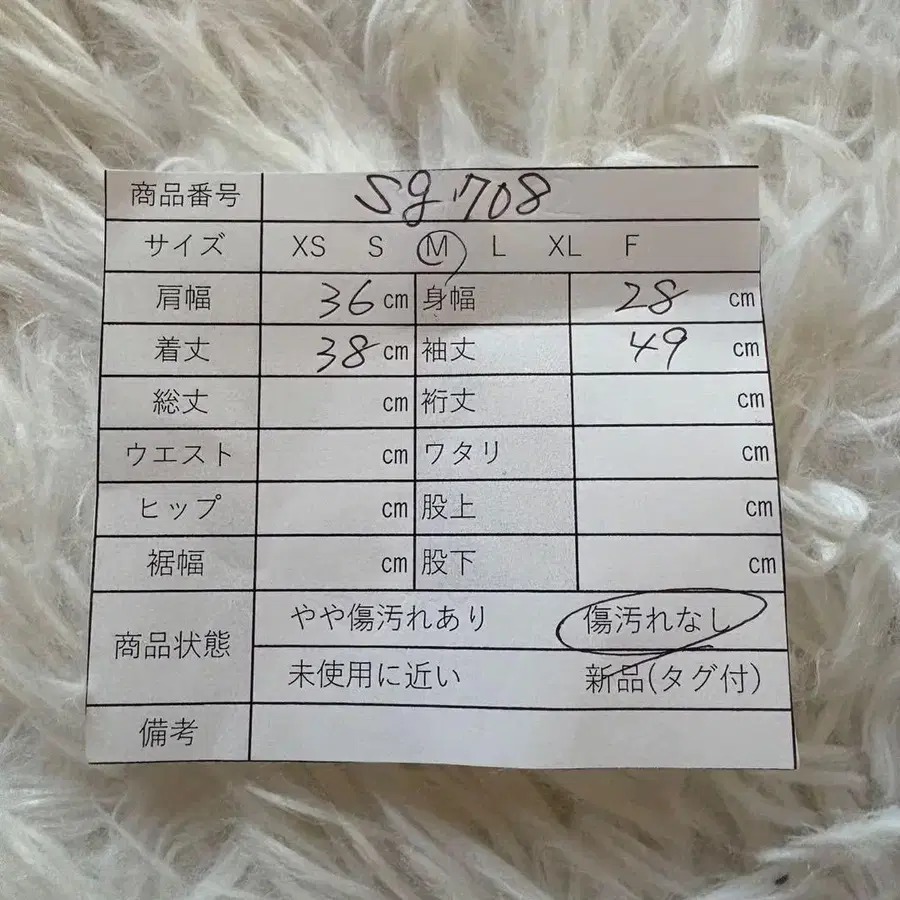 商品番号 sg708
サイズ XS S M L XL F
肩幅 36 cm 身幅 28 cm
着丈 38 cm 袖丈 49 cm
総丈 cm 裄丈 cm
ウエスト cm ワタリ cm
ヒップ cm 股上 cm
裾幅 cm 股下 cm
商品状態 やや傷汚れあり 傷汚れなし
未使用に近い 新品(タグ付)
備考